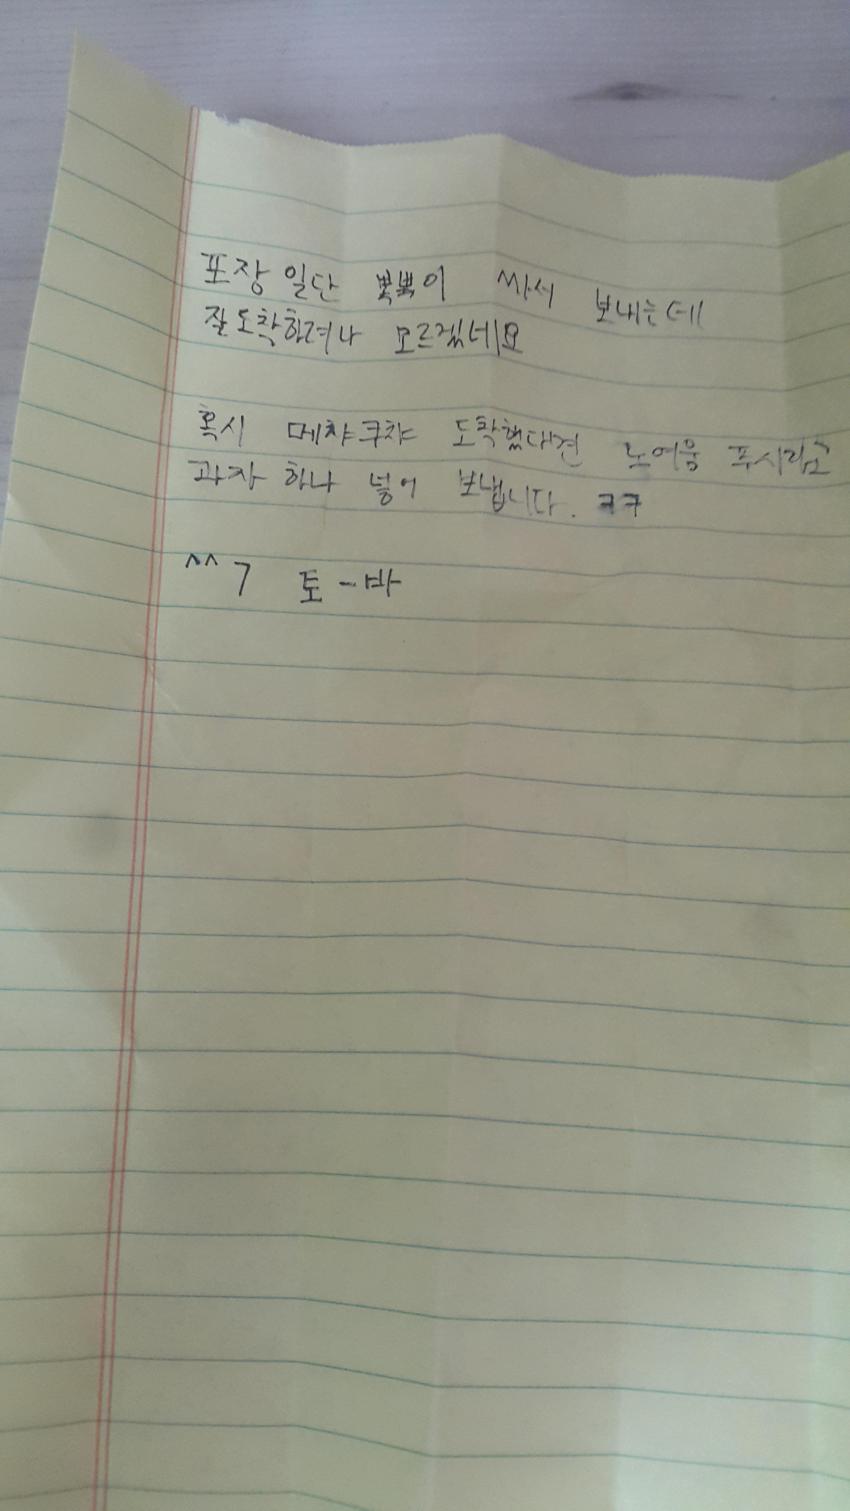 포장 일단 뽁뽁이 싸서 보내는데
잘도착하려나 모르겠네요
혹시 메챠쿠챠 도착했대면 노여움 푸시라고
과자 하나 넣어 보냅니다. ㅋㅋ
^^7 토-바